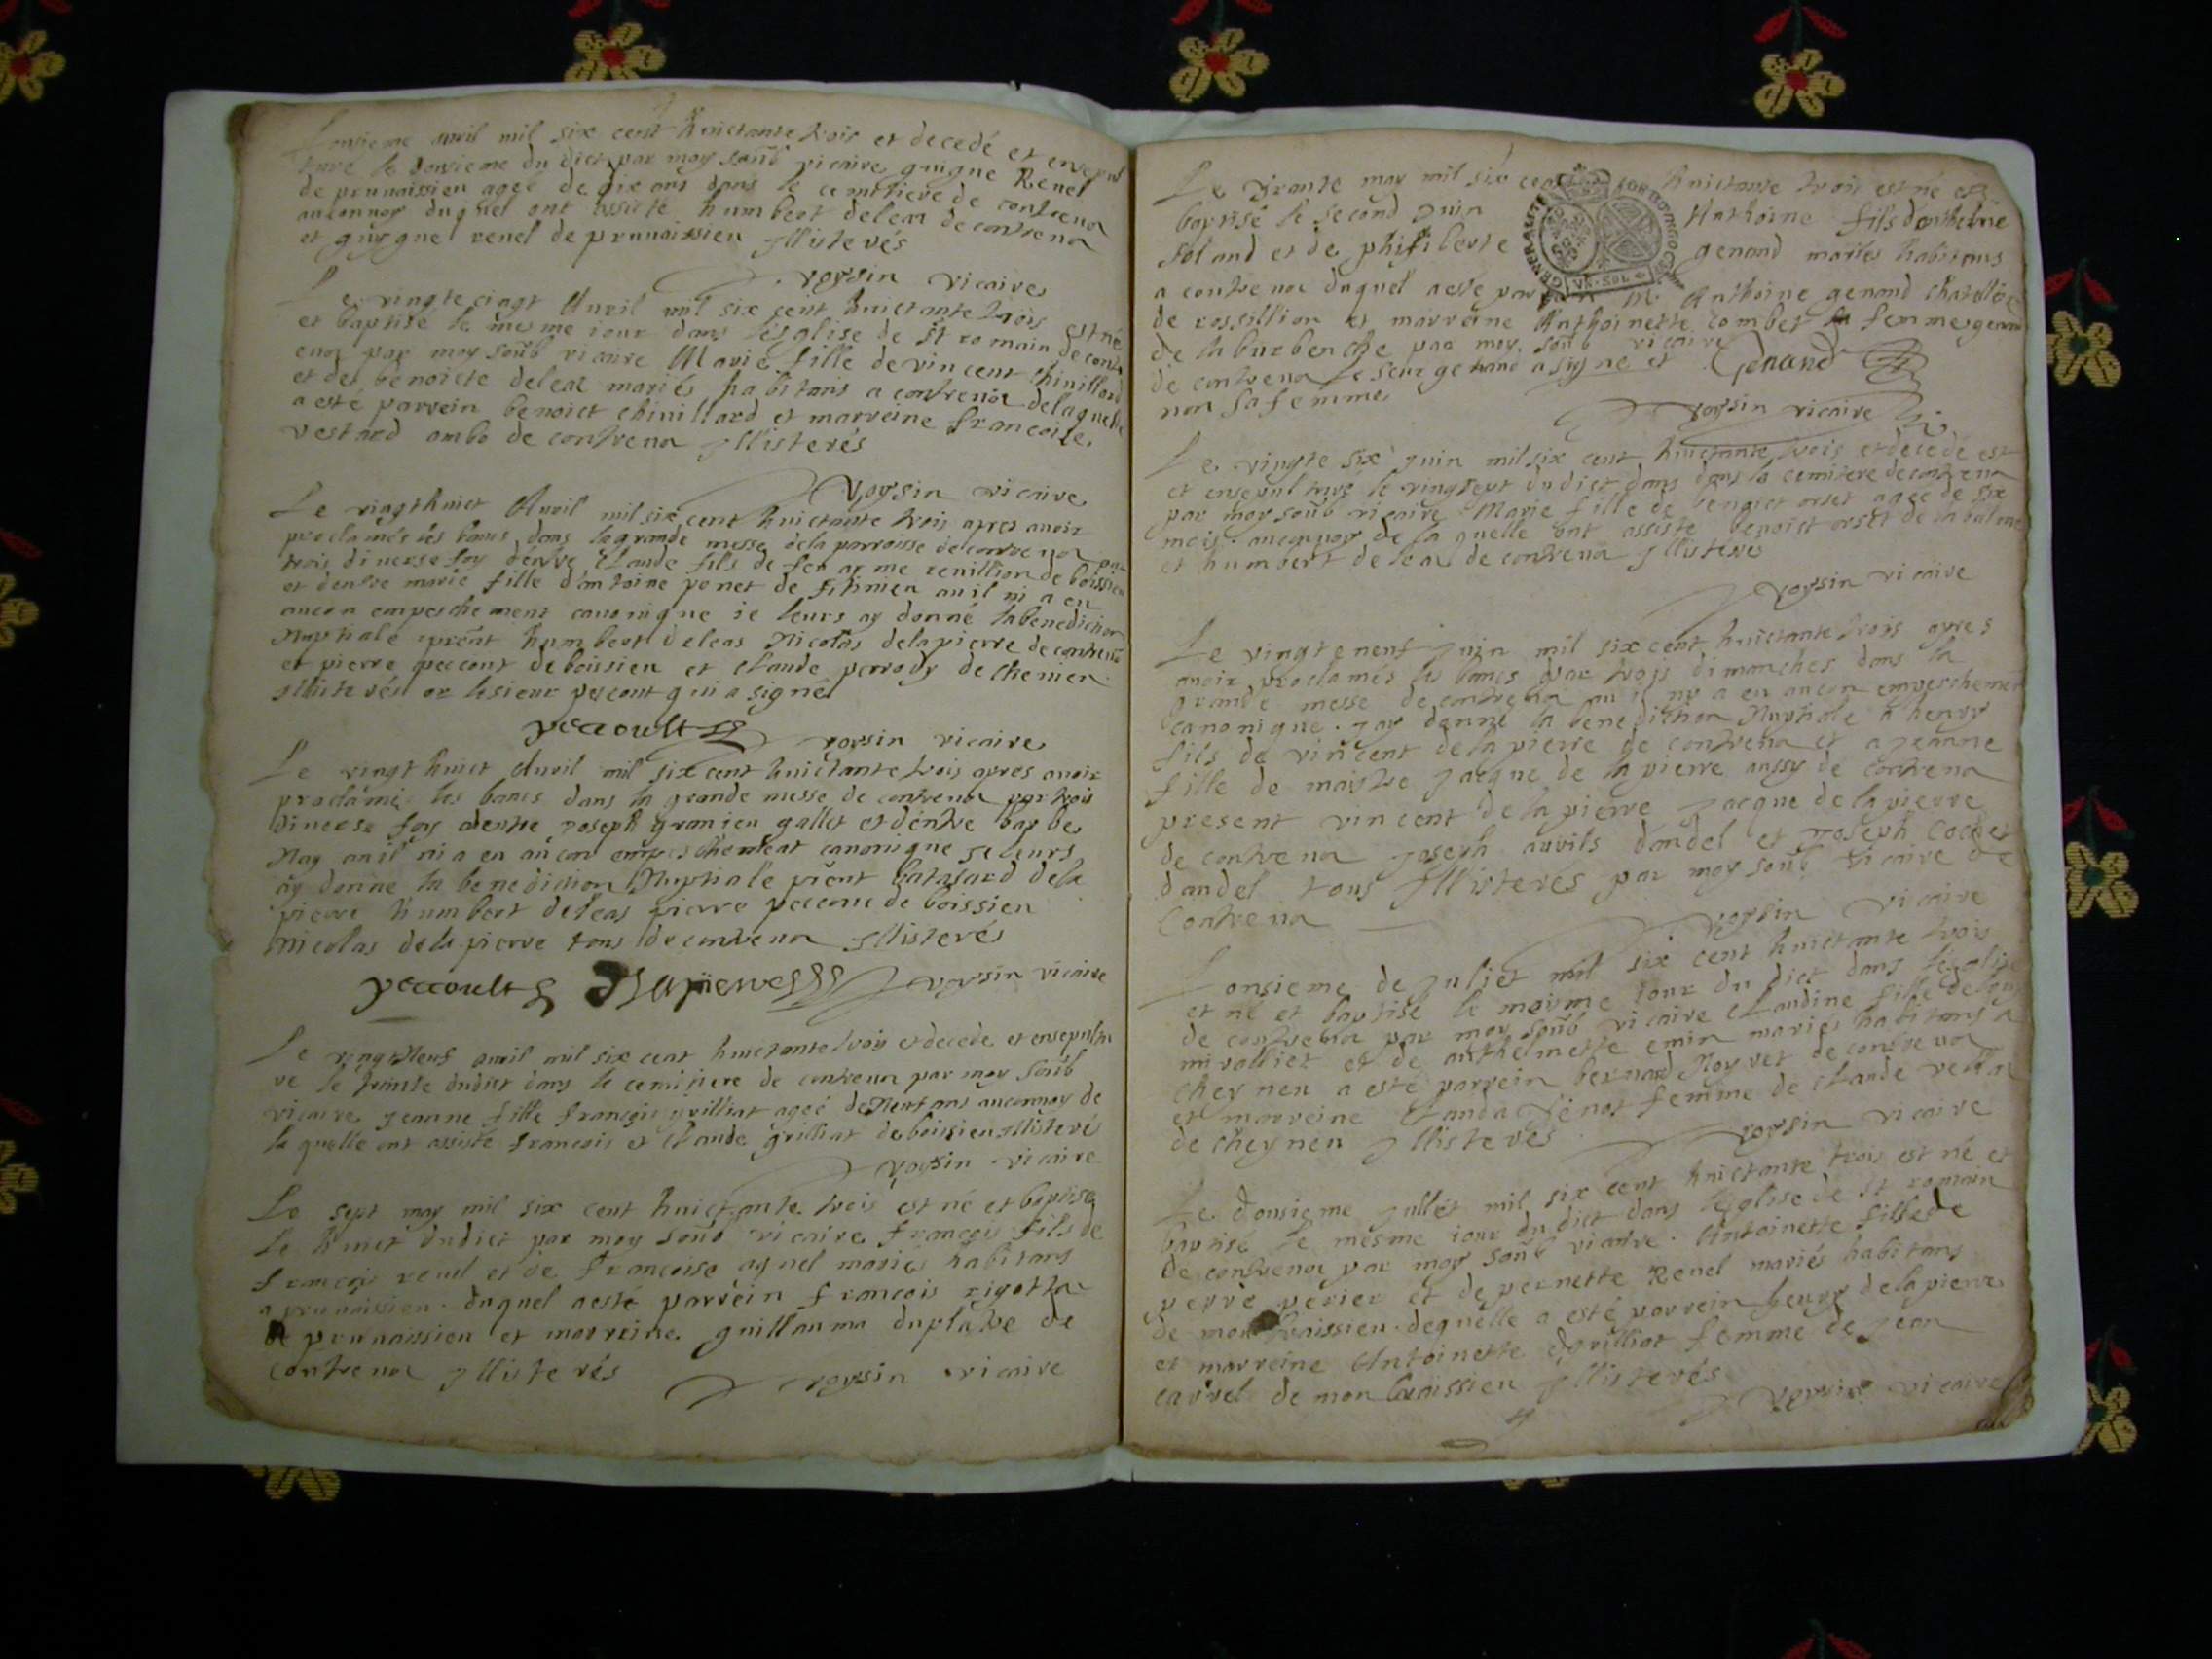 Lonsieme auril mil six cent huictante trois et decedé et ensepul
turé le dousieme du dict par moy soub vicaire guigue Renel
de prunaissieu ageé de dix ans dans le cemitiere de contreuoz
au conuoy duquel ont assisté humbert deleaz de contreuoz
et guigue renel de prunaissieu Illiterés
voysin vicaire
Le vingtecinqt Auril mil six cent huictante trois est né
et baptisé le mesme iour dans lesglise de St romain de contr
euoz par moy soub vicaire Marie fille de vincent chinillard
et de benoicte deleaz mariés habitans a contreuoz de laquelle
a esté parrein benoict chinillard et marreine francoise
vestard ambo de contreuoz Illisterés
voysin vicaire
Le vingthuict Auril mil six cent huictante trois apres auoir
proclamés les bancs dans la grande messe de la parroisse de contreuoz par
trois diuerse foy dentre Claude fils de feu ayme reuillion de boissieu
et dentre marie fille d'antoine ponet de au il ni a eu
aucun empeschement canonique ie leurs ay donné la benediction
Nuptiale prent humbert deleas Nicolas delapierre de contreuoz
et pierre peccout de boissieu et Claude perrody de chemieu
Illisterés or lesieur peccout qui a signé
peccoult voysin vicaire
Le vingt huict Auril mil six cent huictante trois apres auoir
proclamé les bancs dans la grande messe de contreuoz par trois
diuerse foy dentre Joseph gramieu gallet et dentre barbe
Nay au il ni a eu aucun empeschement canonique Je leurs
ay donne la benediction Nuptiale prent batasard dela
pierre humbert deleas pierre peccout de boissieu
Nicolas dela pierre tous de contreuoz Illisterés
peccoult Dlapierre voysin vicaire
Le vingt Neuf auril mil six cent huictante trois et decede et ensepultu
ré le trante dudict dans le cemitiere de contreuoz par moy soub
vicaire Jeanne fille francois grilliat ageé de Neuf ans au conuoy de
la quelle ont assisté francois et Claude grilliat de boissieu Illisterés
voysin vicaire
Le sept may mil six cent huictante trois est né et baptisé
le huict dudict par moy soub vicaire francois fils de
francois renel et de francoise aynel mariés habitans
a prunaissieu . duquel a esté parrein francois rigottaz
de prunaissieu et marreine guillauma duplatre de
contreuoz Illisterés voysin vicaire
Le trante may mil six cent huictante trois est né et
baptisé le second Juin Anthoine fils d'anthelme
soland et de philiberte genand mariés habitans
a contreuoz duquel a esté parrein Mr Anthoine genand chatellein
de rossillion et marreine Anthoinette combet sa femme
de la burbenche par moy soub vicaire
de contreuoz le seur genand a signé et Genand
non sa femme
voysin vicaire
Le vingte six Juin mil six cent huictante trois et decedé est
et ensepulturé le vingtsept dudict dans dans la cemitere de contreuoz
par moy soub vicaire Marie fille de benoict orset ageé de six
mois . au conuoy de la quelle ont assisté benoict orset de la balme
et humbert deleaz de contreuoz Illisteres
voysin vicaire
Le vingteneuf Juin mil six cent huictante trois apres
auoir proclamés les bancs par trois dimanches dans la
grande messe de contreuoz au il ny a eu aucun empeschement
canonique . Jay donné la benediction Nuptiale a henry
fils de vincent de la pierre de contreuoz et a Jeanne
fille de maistre Jacque de la pierre aussy de contreuoz
present vincent de la pierre Jacque de lapierre
de contreuoz Joseph dandel et Joseph Cochet
dandel tous Illisteres par moy soub vicaire de
Contreuoz voysin vicaire
Lonsieme de Juliet mil six cent huictante trois
et né et baptisé le mesme iour du dict dans leglise
de contreuoz par moy soub vicaire Claudine fille de
miralliet et de anthelmette emin mariés habitans a
cheyneu a esté parrein bernard Noyret de contreuoz
et marreine Clauda Jénot femme de Claude
de cheyneu Illisterés voysin vicaire
Le dousieme Jullét mil six cent huictante trois est né et
baptisé le mesme iour du dict dans leglise de St romain
de contreuoz par moy soub vicaire . Antoinette fille de
perre perier et de pernette Renel mariés habitans
de montbraissieu . dequelle a esté parrein henry delapierre
et marreine Antoinette grilliat femme de Jean
carrel de montbraissieu Illisterés
voysin vicaire